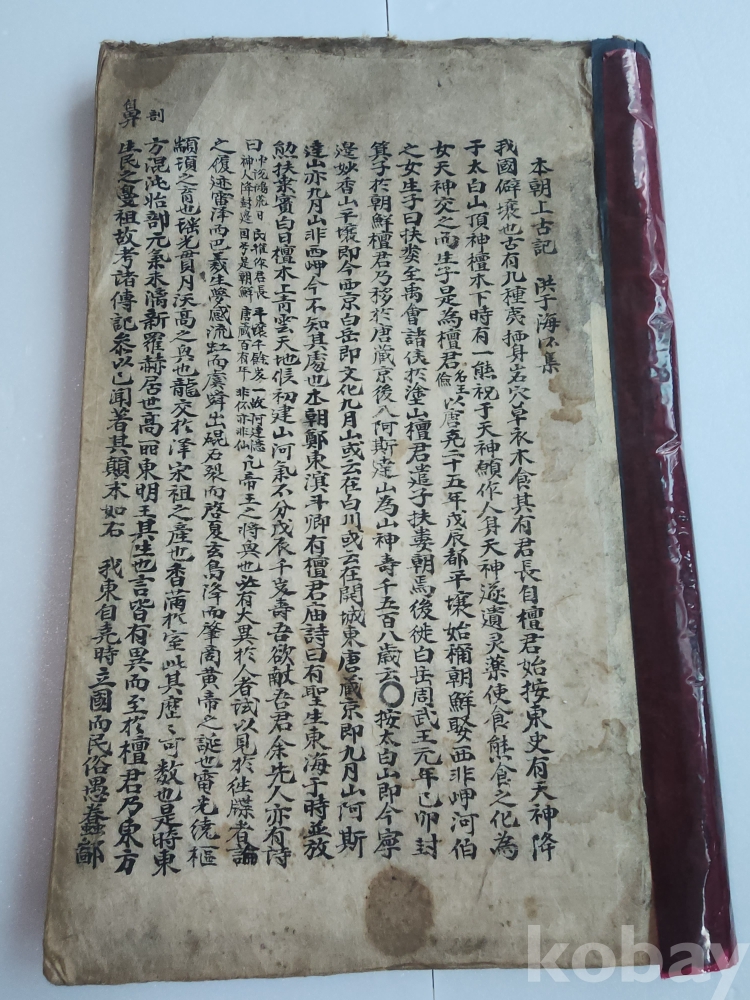 本朝上古記 洪于海 集
我國僻壤也古有九種夷栖身岩穴草衣木食其有君長自檀君始按東史有天神降
于太白山頂神檀木下時有一熊祝于天神願作人身天神遂遺灵薬使食熊食之化為
女天神交之而生子是為檀君名王儉以唐堯二十五年戊辰都平壤始称朝鮮娶西非岬河伯
之女生子曰扶婁至禹會諸侯於塗山檀君遣子扶婁朝焉後徙白岳周武王元年己卯封
箕子於朝鮮檀君乃移於唐藏京後入阿斯達山為山神壽千五百八歳云〇按太白山即今寧
邊妙香山平壤即今西京白岳即文化九月山或云在白川或云在開城東唐藏京即九月山阿斯
達山亦九月山非西岬今不知其處也本朝鄭東溟斗卿有檀君庙詩曰有聖生東海于時並放
勛扶桒賓白日檀木上青雲天地侯初建山河氣不分戊辰千歳壽吾欲献吾君余先人亦有詩
曰中説鴻荒日民推作君長平壤千餘岁一故阿達憑神人降封邊国号是朝鮮唐蔵百有年非佟亦非仙凡帝王之将興也必有大異於人者試以見於往牒者論
之復迹雷泽而巴羲生夢感流虹而虞舜出硯石裂而啓夏玄鳥降而肇商黄帝之誕也電光繞樞
顓頊之育也瑶光貫月沃高之興也龍交於泽宋祖之產也香蒲於室此其歷〻可数也是時東
方混沌怡剖元氣未漓新羅赫居世高丽東明王其生也言皆有異而至於檀君乃東方
生民之曼祖故考諸傳記参以己聞著其顛末如右 我東自堯時立國而民俗愚蠢鄙
剖
鼻
kobay